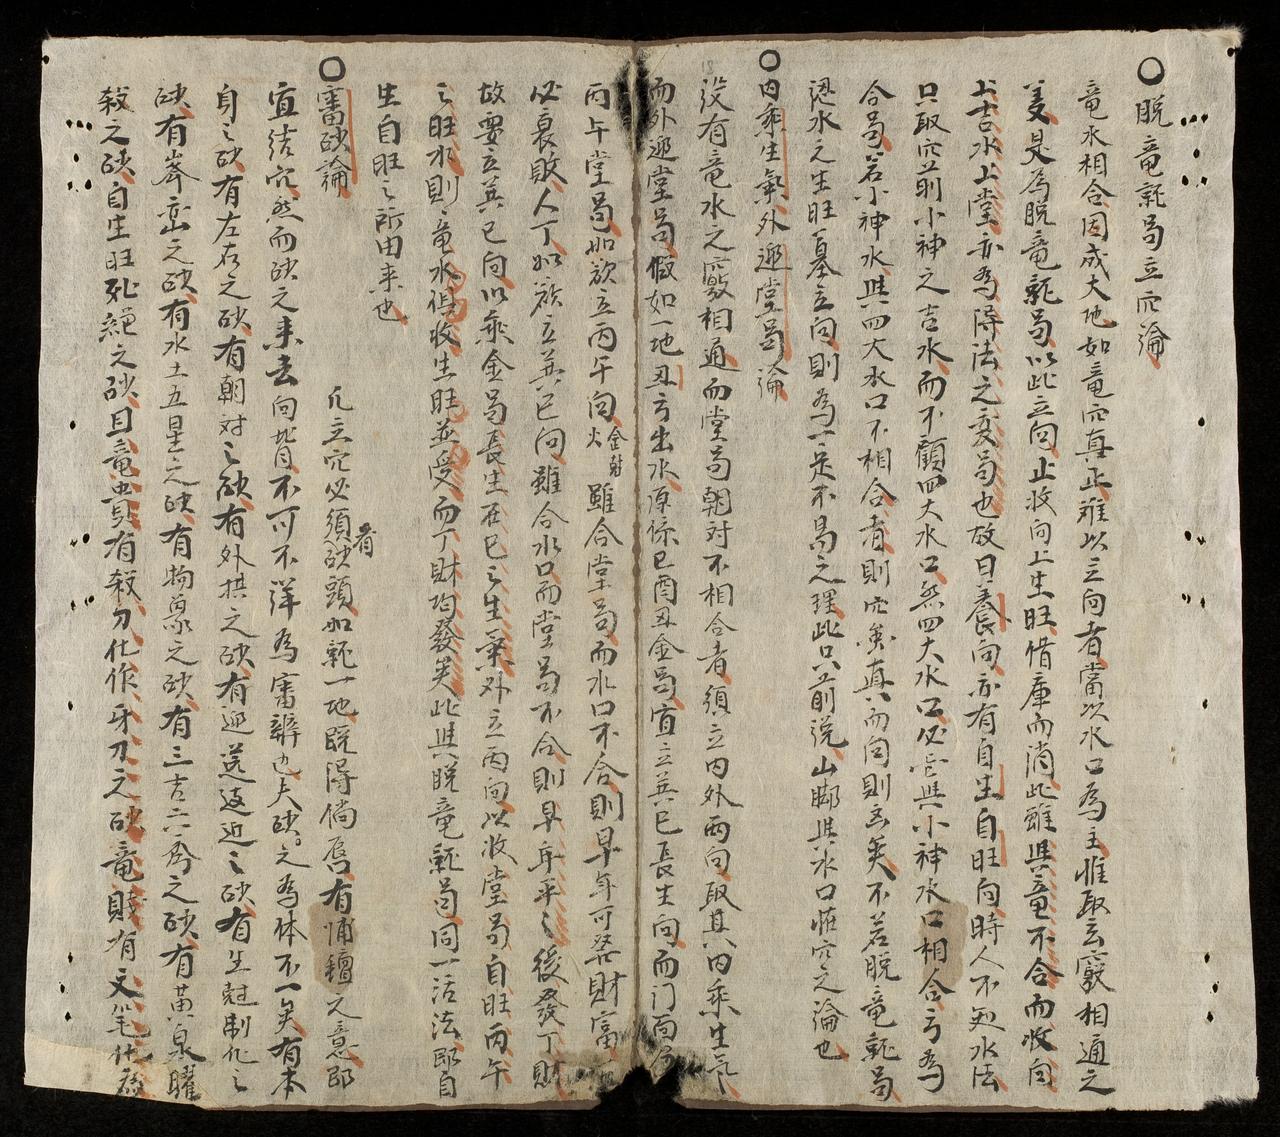 脱竜就局立穴論
竜水相合因成大地如竜穴真正难以立向者當以水口為主惟取玄竅相通之
羙是為脱竜就局以此立向止收向上生旺惜庫而消此雖與竜不合而收向
上吉水上堂亦為得法之変局也故曰養向亦有自生自旺向時人不知水法
只取穴前小神之吉水而不顧四大水口然四大水口必它與小神水口相合方為
合局若小神水與四大水口不相合者則穴虽真而向則玄矣不若脱竜就局
認水之生旺墓立向則為一定不易之理此只前説山脚其水口惟穴之論也
内乘生氣外迎堂局論
設有竜水之竅相通而堂局朝対不相合者須立内外両向取其内乘生氣
而外迎堂局假如一地丑方出水原係巳酉丑金局宜立巽巳長生向而门面
丙午堂局如欲立丙午向 金肘火 雖合堂局而水口不合則早年可發財富
必衰敗人丁如欲立巽巳向雖合水口而堂局不合則早年平之後發丁財
故要立巽巳向以乘金局長生在巳之生氣外立丙向以收堂局自旺丙午
之旺水則竜水俱收生旺並受而丁財均發矣此與脱竜就局同一活法即自
生自旺之所由来也
審砂論 凡立穴必須看砂頭如就一地既得倘唇有
宜結穴然而砂之来去向背不可不詳為審辨也夫砂之為体不一矣有本
身之砂有左右之砂有朝対之砂有外拱之砂有迎送返近之砂有生尅制化之
砂有峯峦之砂有水土五星之砂有物象之砂有三吉六秀之砂有黄泉曜
殺之砂自生旺死絕之砂且竜貴有殺刀化作牙刀之砂竜賤有文笔化